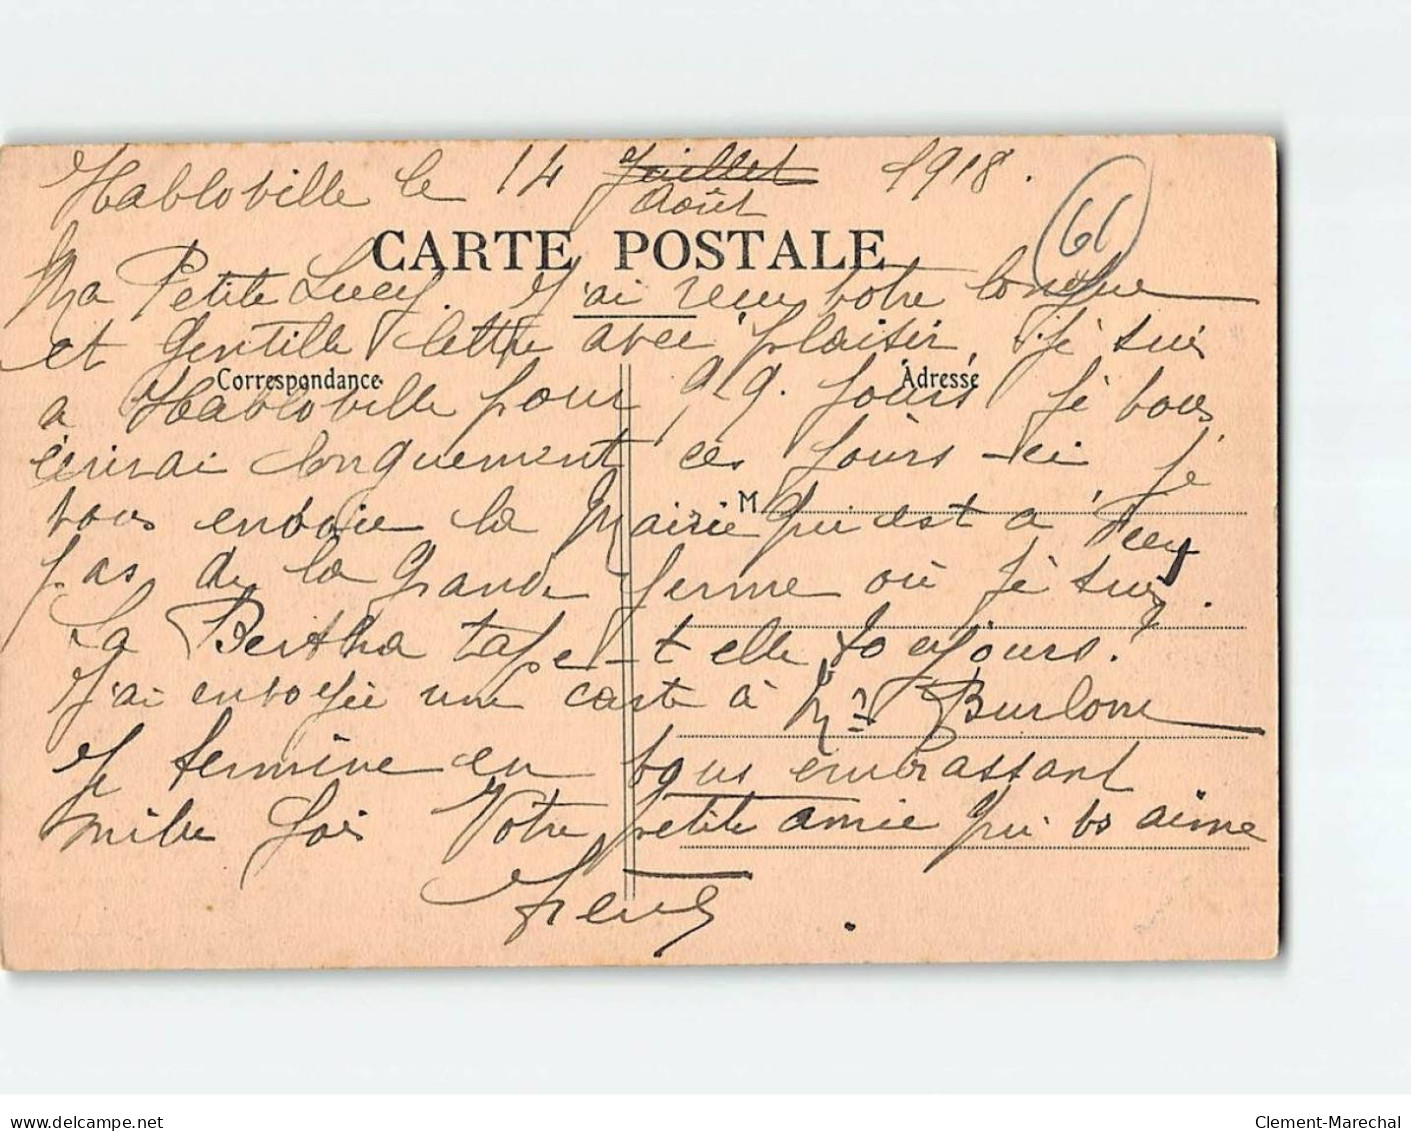 Habloville le 14 Juillet 1918.
Août
66
CARTE POSTALE
Ma Petite Lucy. J'ai reçu votre longue
et gentille lettre avec plaisir. Je suis
Correspondance
Adresse
a Habloville pour jours Je vous
écrirai longuement ces jours-ci Je
M
vous envoie la Mairie qui est a
pas de la Grande ferme où je suis.
La Bertha tape-t elle toujours.
J'ai envoyée une carte à Burlone
Je termine en vous embrassant
mille fois Votre petite amie qui vs aime
delcampe.net
Clement-Marechal